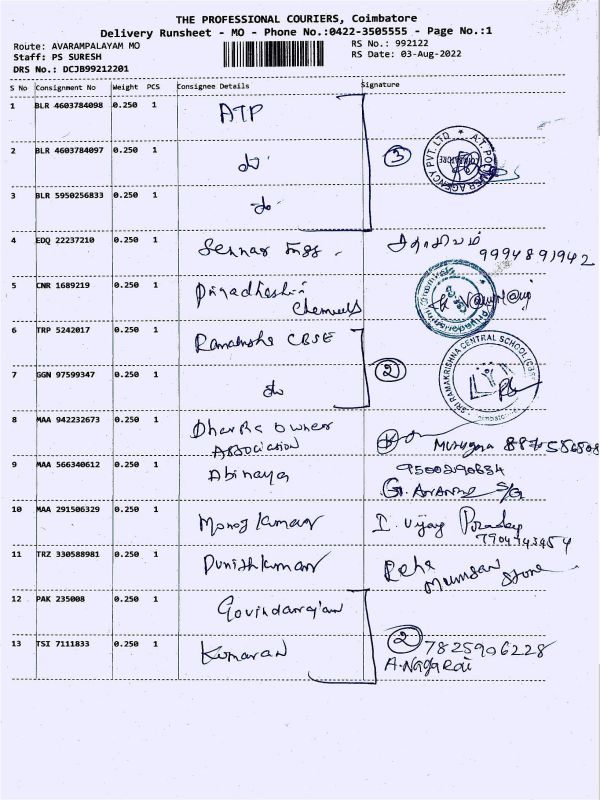 THE PROFESSIONAL COURIERS, Coimbatore
Delivery Runsheet - MO - Phone No.:0422-3505555 - Page No.:1
Route: AVARAMPALAYAM MO
RS No.: 992122
Staff: PS SURESH
RS Date: 03-Aug-2022
DRS No.: DCJB99212201
S No Consignment No Weight PCS Consignee Details Signature
1 BLR 4603784098 0.250 1 ATP
2 BLR 4603784097 0.250 1 do 3
A.T. POWER AGENCY PVT. LTD
3 BLR 5950256833 0.250 1 do
4 EDQ 22237210 0.250 1 9994891942
5 CNR 1689219 0.250 1 Priyadharshini
Chemicals
6 TRP 5242017 0.250 1 Ramakrishna CBSE
SRI RAMAKRISHNA CENTRAL SCHOOL
7 GGN 97599347 0.250 1 do 2
8 MAA 942232673 0.250 1 Dharka Owner
Association
9 MAA 566340612 0.250 1 Abinaya 9500290684
G. Anand
10 MAA 291506329 0.250 1 Manoj Kumar I. Vijay
11 TRZ 330588981 0.250 1 Punith kumar
Store
12 PAK 235008 0.250 1 Govindarajan
13 TSI 7111833 0.250 1 Kumaran 2 7825906228
A. Nagaraj